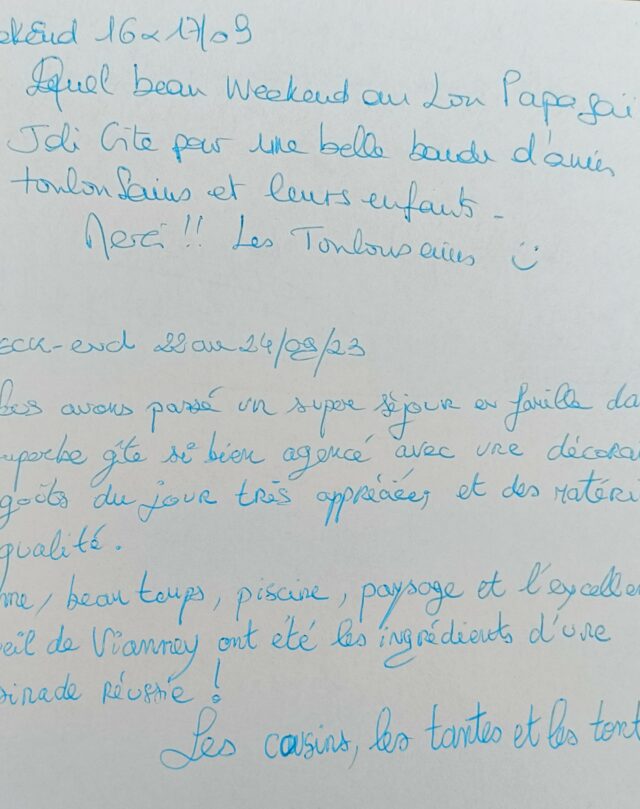 ekend 16 & 17/09
Quel beau Weekend au Lou Papagai
Joli Gîte pour une belle bande d'amis
toulousains et leurs enfants -
Merci !! Les Toulousains
eek-end 22 au 24/09/23
avons passé un super séjour en famille da
uperbe gîte si bien agencé avec une décora
goûts du jour très appréciées et des matéri
qualité.
me, beau temps, piscine, paysage et l'excellen
eil de Vianney ont été les ingrédients d'une
sinade réussie !
Les cousins, les tantes et les tont